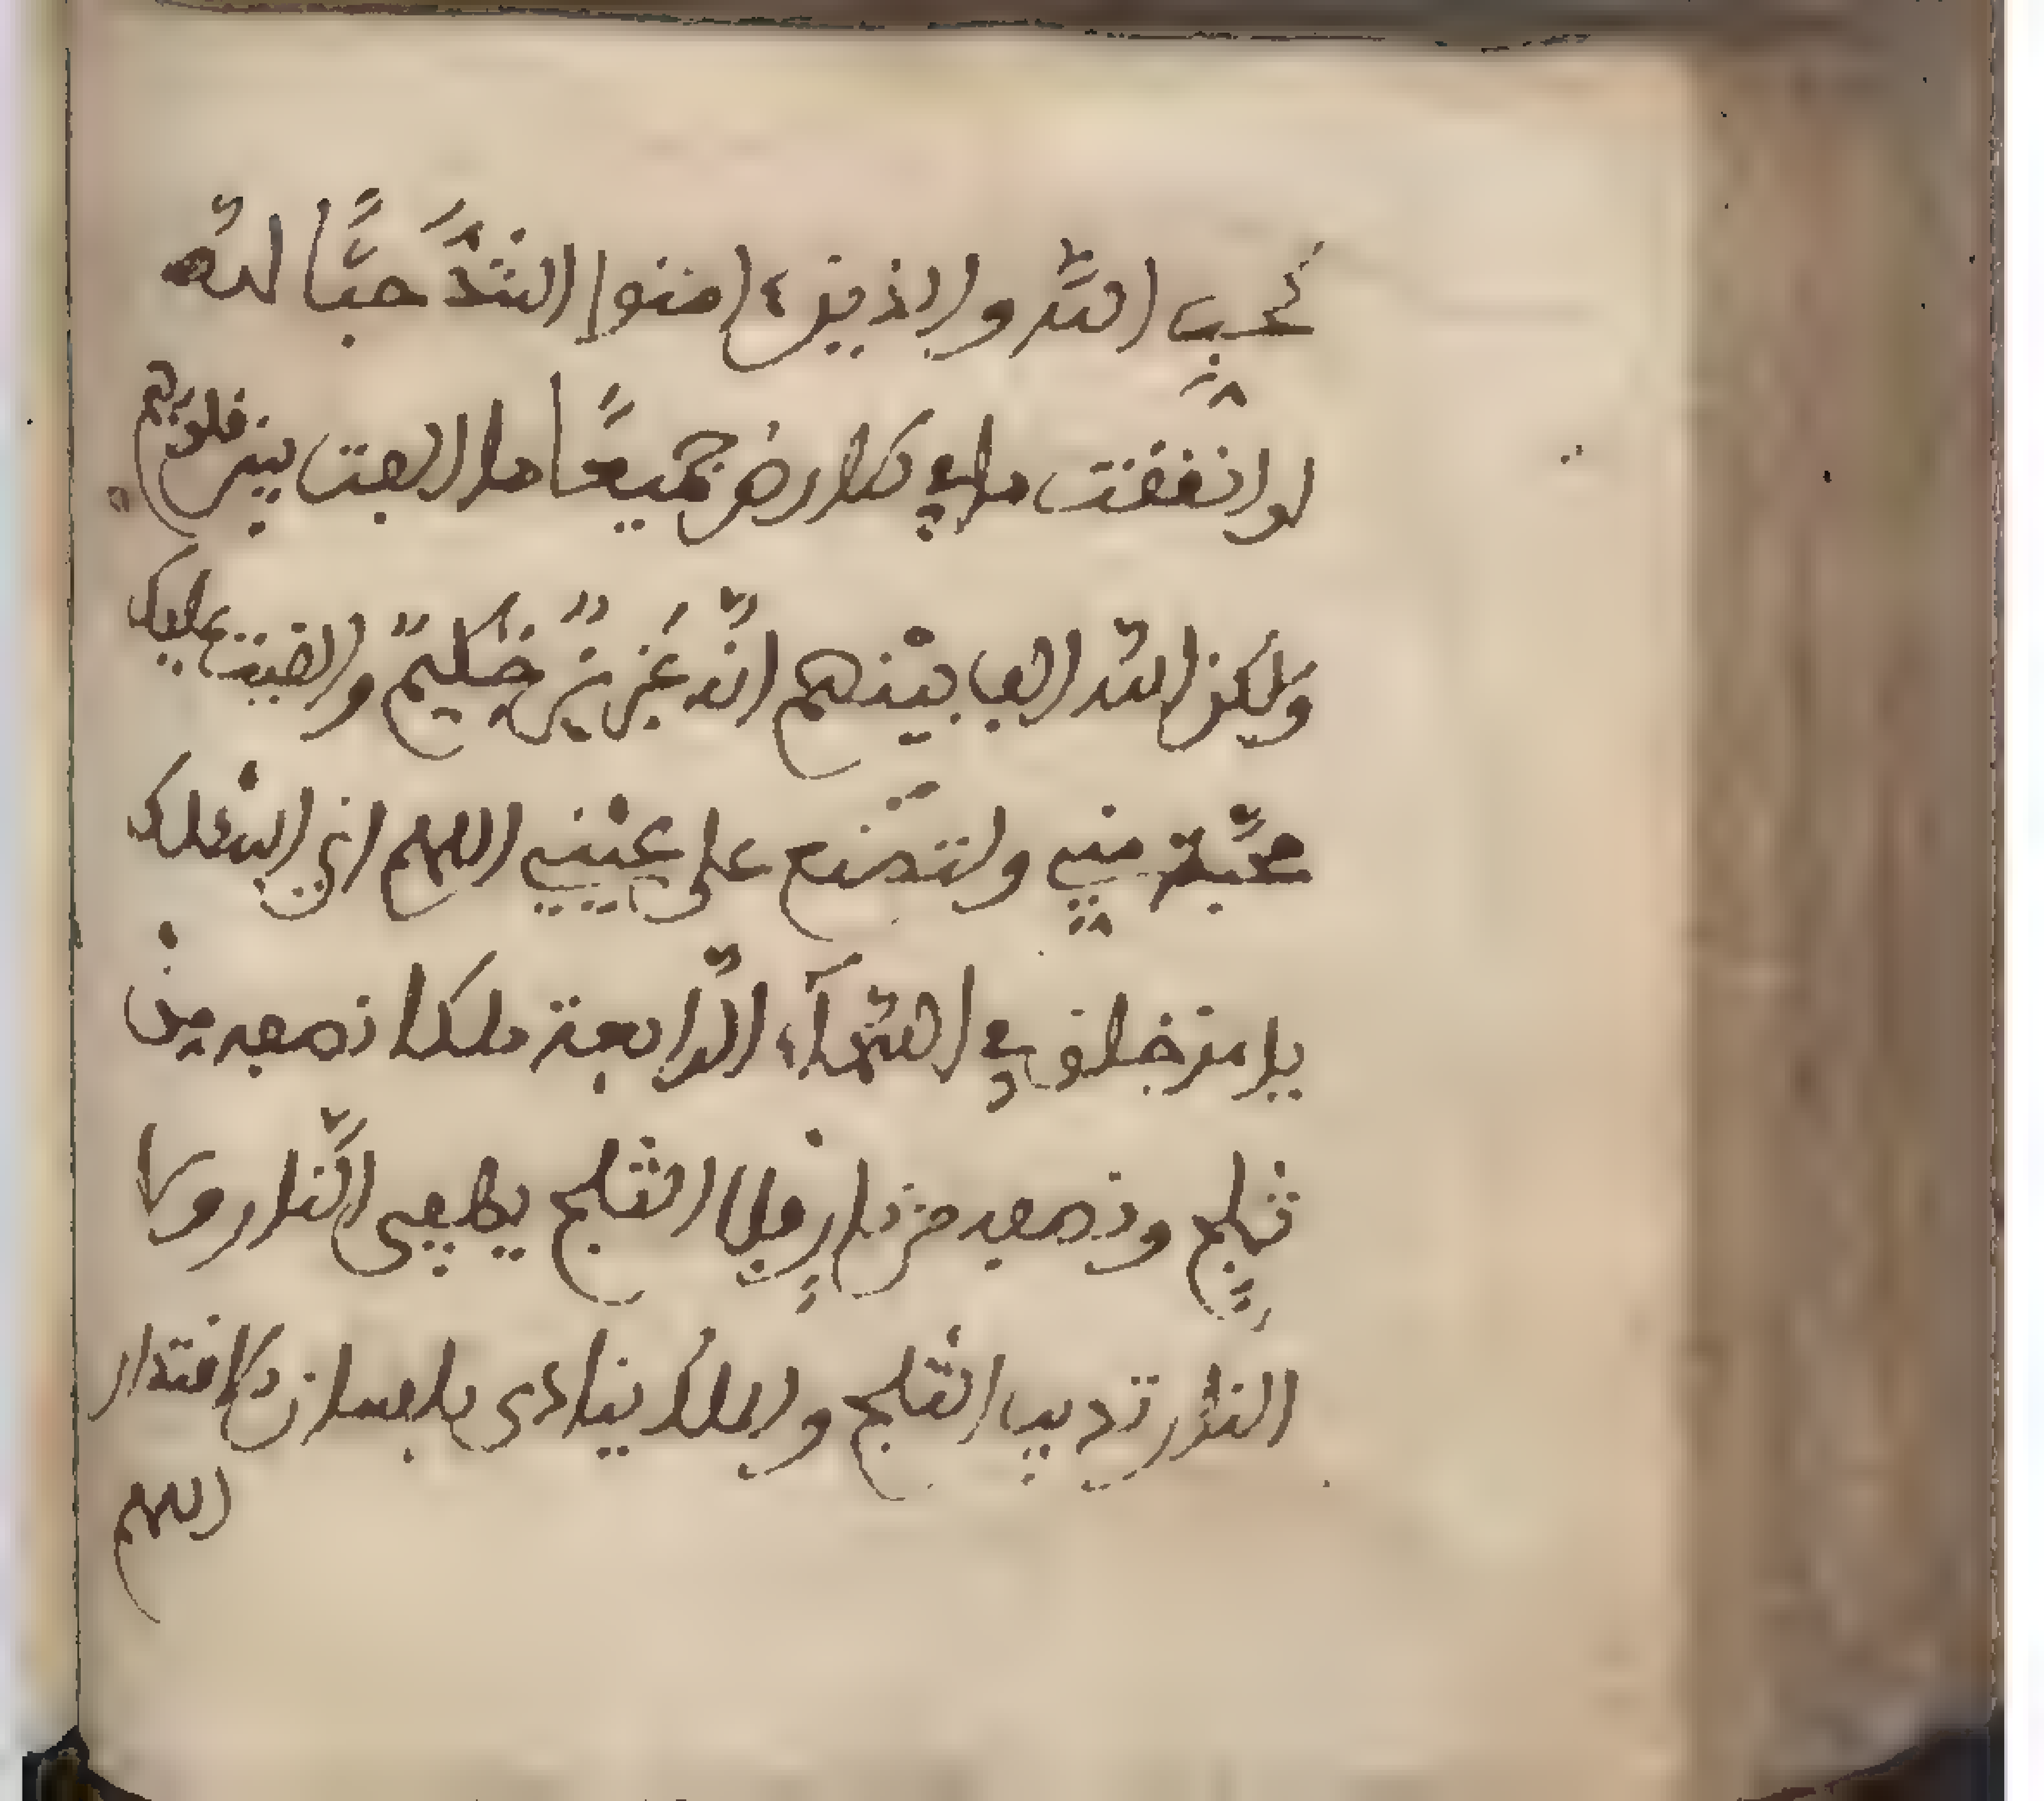 كحب الله والذين ءامنوا اشدّ حبّا لله
لو انفقت ما في الارض جميعًا ما الفت بين قلوبهم
ولكن الله الف بينهم انّه عزيزٌ حكيمٌ والقيت عليك
محبّة مني ولتصنع على عيني اللهم اني اسئلك
يا من خلق في السّمآء الرّابعة ملكا نصفه من
ثلج ونصفه من نار فلا الثلج يطفي النّار ولا
النار تذيب الثلج والملك ينادي بلسان الاقتدار
اللهم